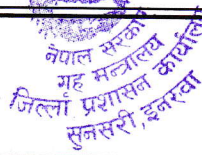 नेपाल सरकार
गृह मन्त्रालय
जिल्ला प्रशासन कार्यालय
सुनसरी, इनरवा